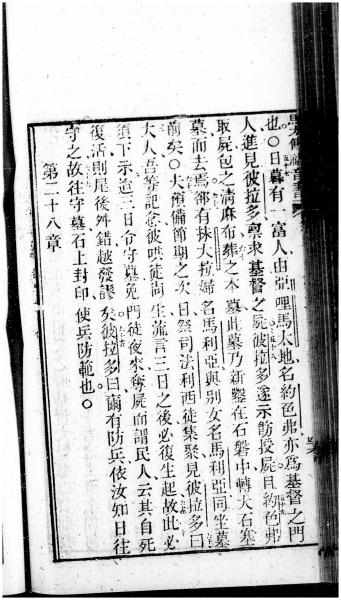 也○日暮有一富人由亞哩馬太地名約色弗亦為基督之門
人進見彼拉多稟求基督之屍彼拉多遂示飭授屍且約色弗
取屍包之清麻布葬之本墓此墓乃新鑿在石磐中轉大石塞
墓而去焉都有抹大拉婦名馬利亞與別女名馬利亞同坐墓
前矣○大預備節期之次日祭司法利西徒集聚見彼拉多曰
大人吾等記念彼哄徒尚生流言三日之後必復生起故此必
須下示這三日令守墓免門徒夜來奪屍而謂民人云其自死
復活則尾後外錯越發謬矣彼拉多曰爾有防兵依汝知日往
守之故往守墓石上封印使兵防範也○
第二十八章